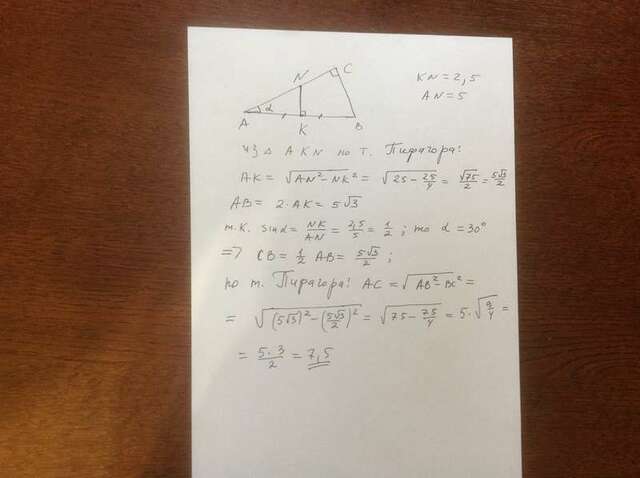 KN = 2,5
AN = 5
C
N
α
A
K
B
из △ AKN по т. Пифагора:
AK = √(AN² − NK²) = √(25 − 25/4) = √75/2 = 5√3/2
AB = 2·AK = 5√3
т.к. sinα = NK/AN = 2,5/5 = 1/2 ; то α = 30°
=> CB = 1/2 AB = 5√3/2 ;
по т. Пифагора: AC = √(AB² − BC²) =
= √((5√3)² − (5√3/2)²) = √(75 − 75/4) = 5·√(9/4) =
= 5·3/2 = 7,5